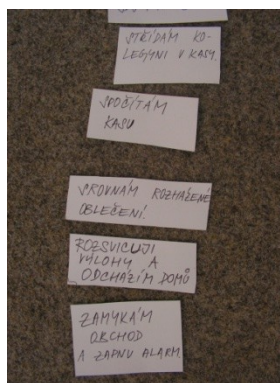 STŘÍDÁM KO-
LEGYNI V KASY.
SPOČÍTÁM
KASU
SROVNÁM ROZHÁZENÉ
OBLEČENÍ.
ROZSVICUJI
VÝLOHY A
ODCHÁZÍM DOMŮ
ZAMYKÁM
OBCHOD
A ZAPNU ALARM.